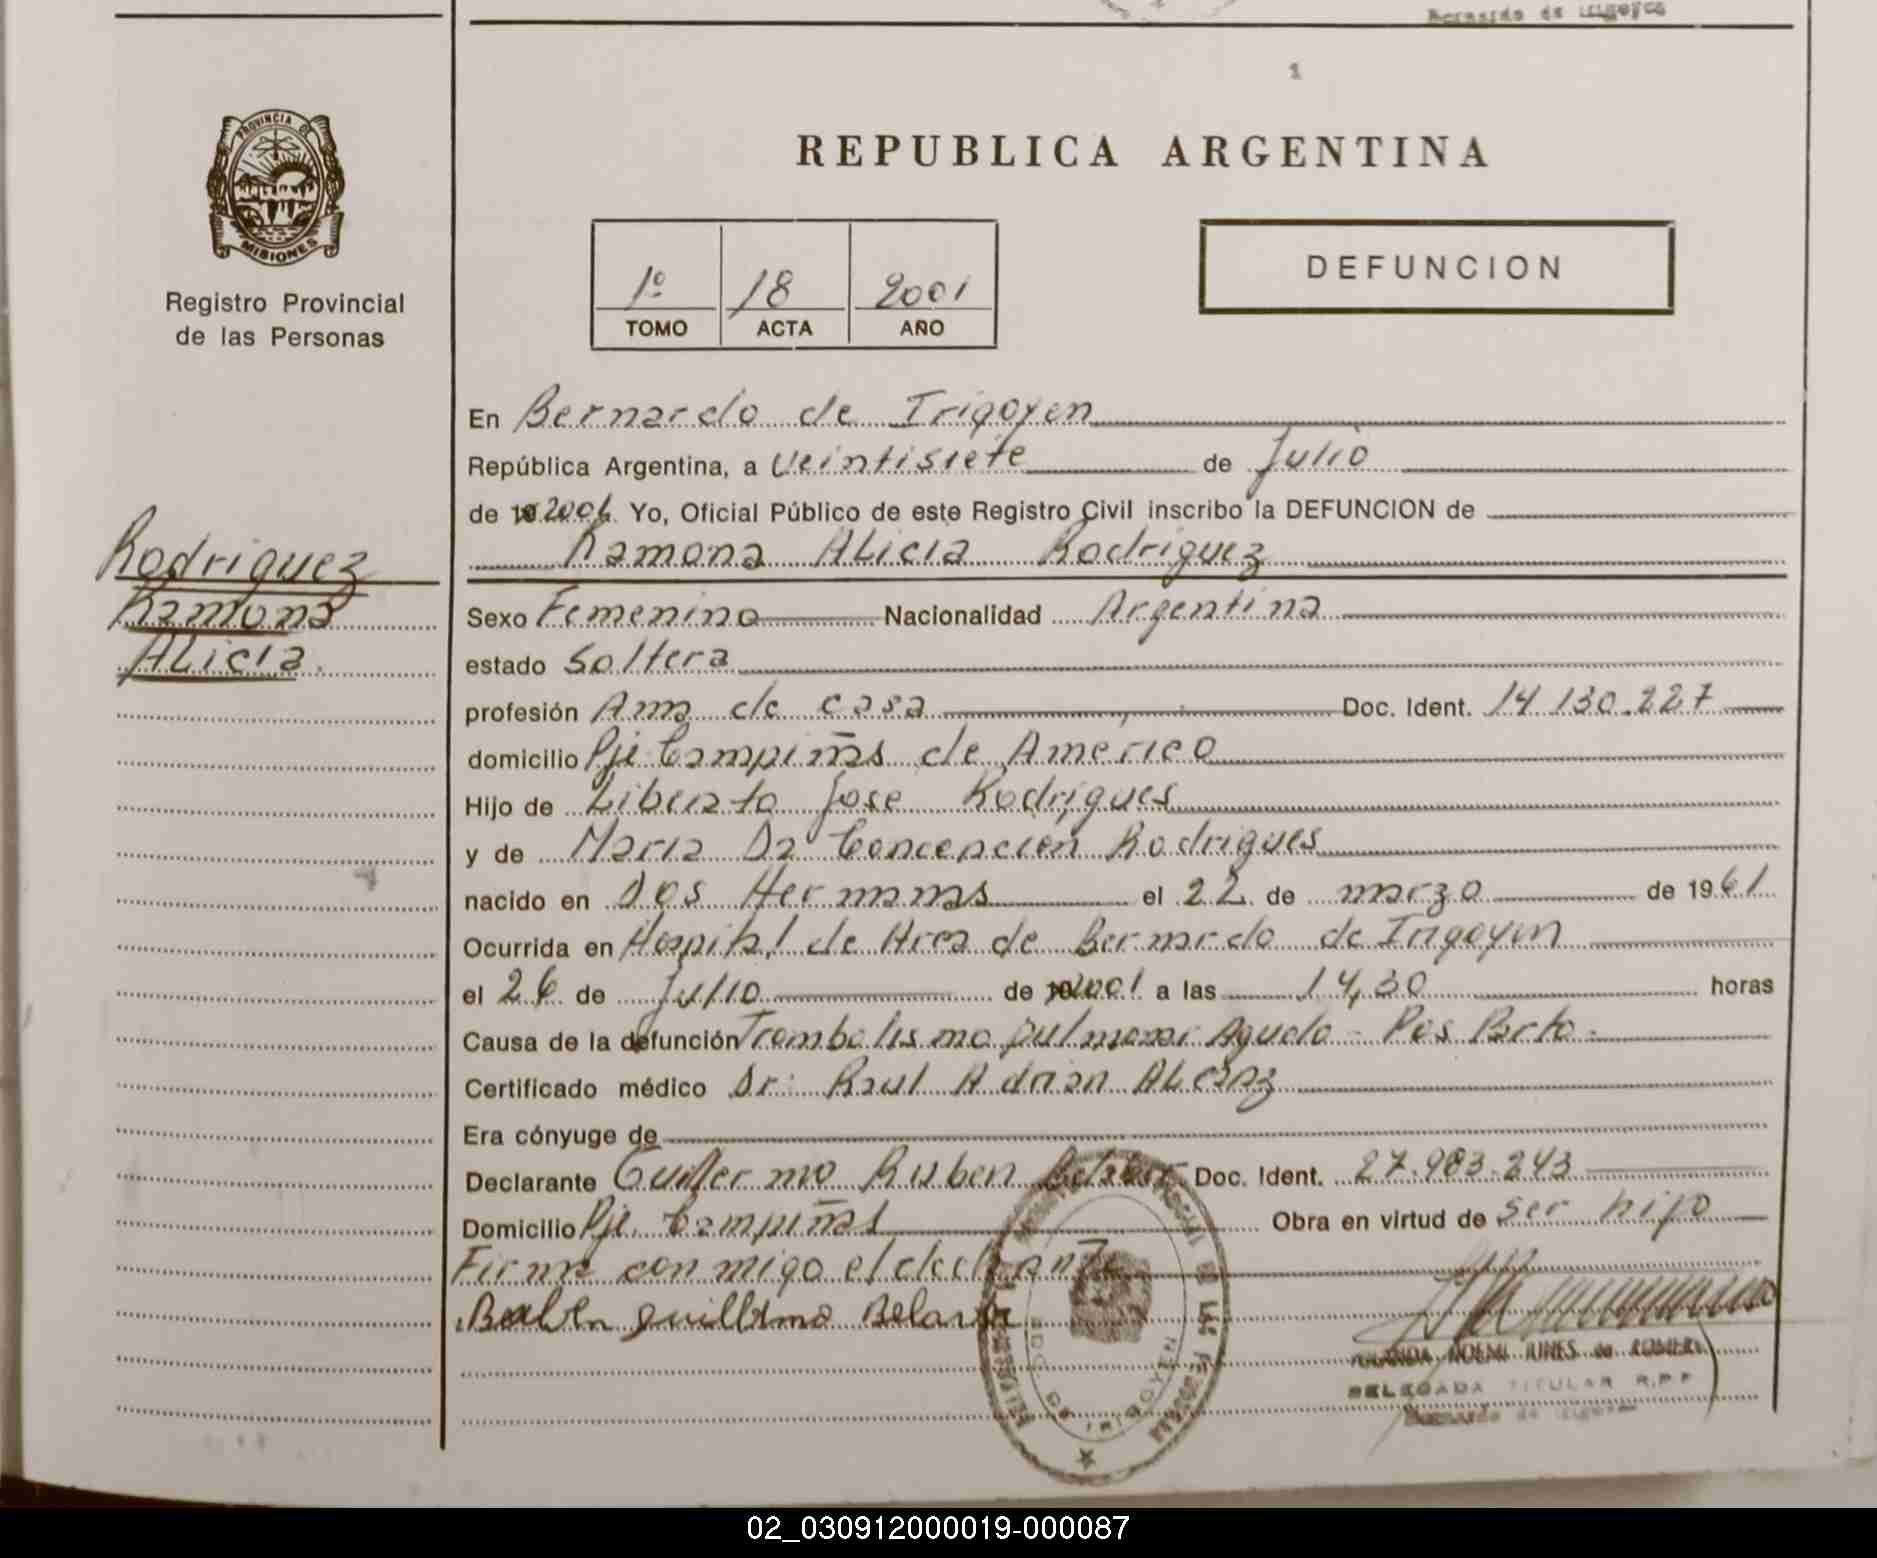 Bernardo de Irigoyen
1
PROVINCIA DE
MISIONES
Registro Provincial
de las Personas
REPUBLICA ARGENTINA
1º 18 2001
TOMO ACTA AÑO
DEFUNCION
En Bernardo de Irigoyen
República Argentina, a Veintisiete de Julio
de 2001 Yo, Oficial Público de este Registro Civil inscribo la DEFUNCION de
Ramona Alicia Rodriguez
Rodriguez
Ramona
Alicia.
Sexo Femenino Nacionalidad Argentina
estado Soltera
profesión Ama de casa Doc. Ident. 14.130.227
domicilio Pje Campiñas de Américo
Hijo de Liberato Jose Rodrigues
y de Maria Da Concepción Rodrigues
nacido en Dos Hermanas el 22 de marzo de 1961
Ocurrida en Hospital de Area de Bernardo de Irigoyen
el 26 de Julio de 2001 a las 14,30 horas
Causa de la defunción Trombolismo pulmonar Agudo - Pos Parto -
Certificado médico Dr: Raul Adrian Alcaraz
Era cónyuge de
Declarante Guillermo Ruben Doc. Ident. 27.983.243
Domicilio Pje. Campiñas Obra en virtud de ser hijo
Firma con migo el declarante
Guillermo
NOEMI de ROMERO
DELEGADA TITULAR R.P.P
Bernardo de Irigoyen
BDO DE IRIGOYEN
02_030912000019-000087